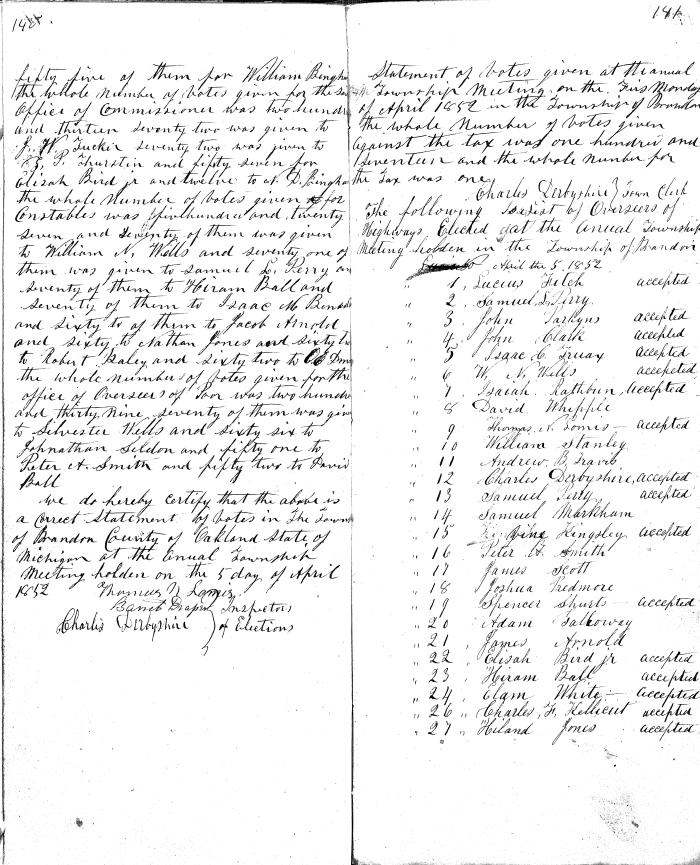 148.
fifty five of them for William Bingh
the whole number of votes given for the
Office of Commissioner was two hundr
and thirteen seventy two was given to
J. W. Tucker seventy two was given to
P. Thurstin and fifty seven for
Elisah Bird jr and twelve to A. D. Bingha
the whole Number of votes given for
Constables was five hundre and twenty
seven and seventy of them was given
to William N. Wells and seventy one of
them was given to Samuel L. Perry an
seventy of them to Hiram Ball and
seventy of them to Isaac N
and sixty to of them to Jacob Arnold
and sixty to Nathan Jones and sixty tw
to Robert Baley and sixty two to
the whole numbers of votes given for the
office of Overseers of Poor was two hundr
and thirty Nine seventy of them was giv
to Silvester Wells and sixty six to
Johnathan Seldon and fifty one to
Peter A. Smith and fifty two to David
Ball
we do hereby certify that the above is
a correct statement of votes in The Town
of Brandon County of Oakland State of
Michigan at the Anual Township
Meeting holden on the 5 day of April
1852 Thomas N Loomis
Draper } Inspectors
Charles Derbyshire } of Elections
Statement of votes given at the anual
Township Meeting on the Firs Monday
of April 1852 in the Township of Brandon
the whole Number of votes given
against the tax was one hundred and
seventeen and the whole number for
the tax was one
Charles Derbyshire } Town Clerk
The following is a list of Overseers of
Highways, Elected at the annual Township
Meeting holden in the Township of Brandon
April the 5, 1852
" 1, Lucius Fitch accepted
" 2, Samuel L. Perry.
" 3 John accepted
" 4, John Clark accepted
" 5 Isaac C Truax accepted
" 6 W. N. Wells accepted
" 7 Isaiah Rathbun, accepted
" 8 David Whipple
" 9 Thomas N. Lomis accepted
" 10 William Stanley
" 11 Andrew B Travis
" 12 Charles Derbyshire, accepted
" 13 Samuel Terry accepted
" 14 Samuel Markham
" 15 Kingsley accepted
" 16 Peter A Smith
" 17 James Scott
" 18 Joshua Predmore
" 19 Spencer Shurts accepted
" 20 Adam Galloway
" 21, James Arnold
" 22 Elisah Bird jr accepted
" 23, Hiram Ball accepted
" 24, Elam White accepted
" 26 Charles, F, Kellicut accepted
" 27 Hiland Jones accepted